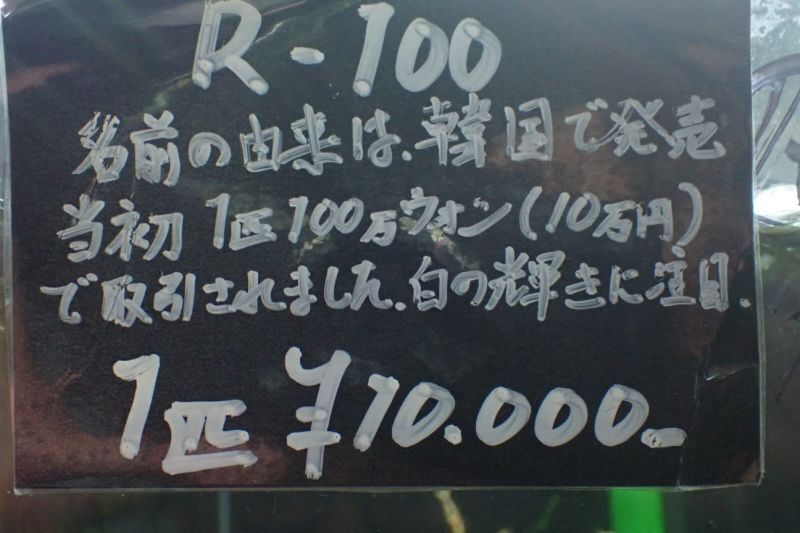 R-100
名前の由来は、韓国で発売
当初 1匹100万ウォン(10万円)
で取引されました。白の輝きに注目.
1匹 ¥10.000.-